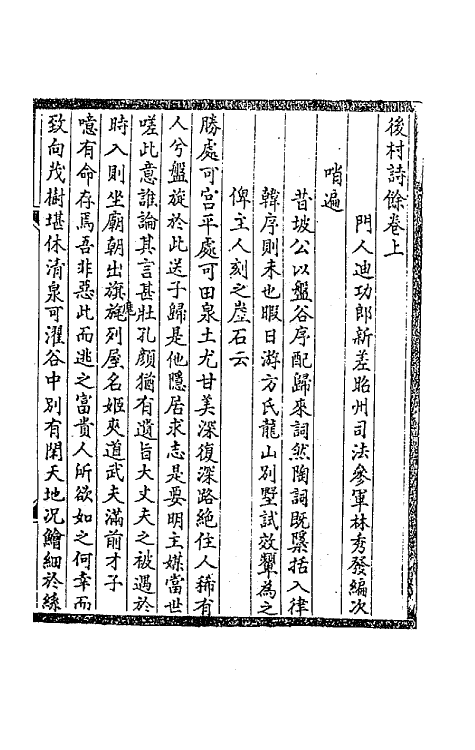 後村詩餘卷上
門人迪功郎新差昭州司法參軍林秀發編次
哨遍
昔坡公以盤谷序配歸來詞然陶詞既櫽括入律
韓序則未也暇日游方氏龍山別墅試效顰為之
俾主人刻之崖石云
勝處可宮平處可田泉土尤甘美深復深路絶住人稀有
人兮盤旋於此送子歸是他隱居求志是要明主媒當世
嗟此意誰論其言甚壯孔顔猶有遺旨大丈夫之被遇於
時入則坐廟朝出旗旄列屋名姬夾道武夫滿前才子
噫有命存焉吾非惡此而逃之富貴人所欲如之何幸而
致向茂樹堪休清泉可濯谷中別有閒天地況鱠細於絲